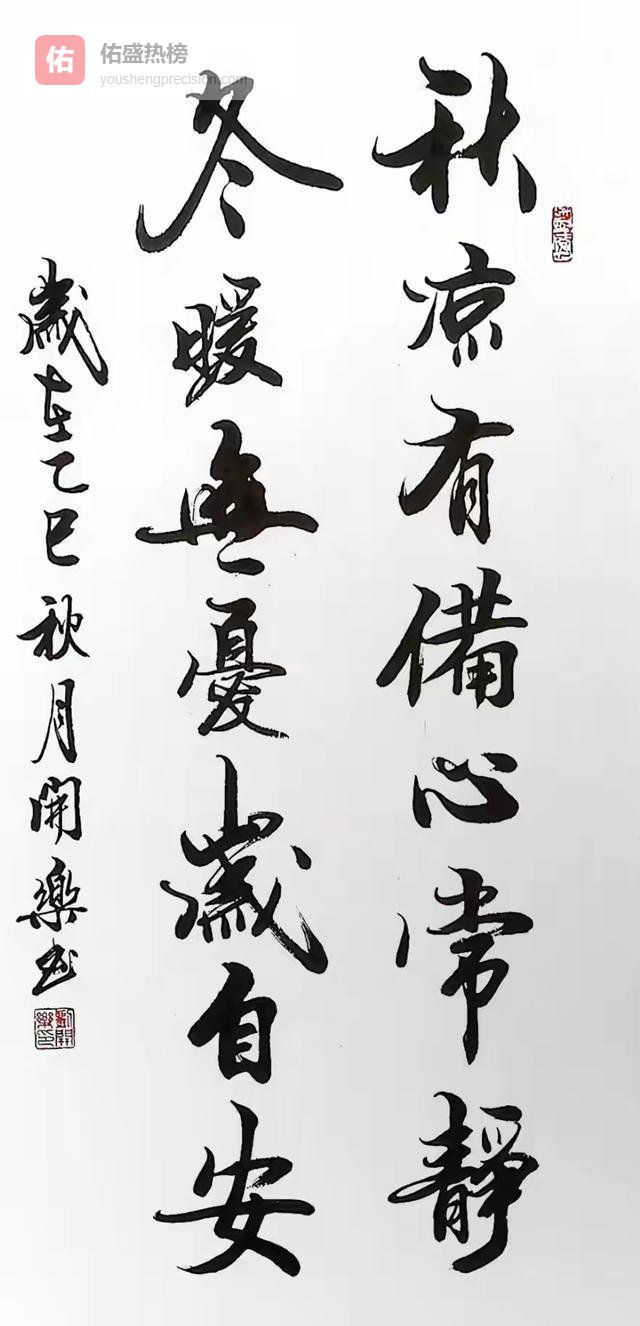 佑 佑盛热榜
youshengprecision.com
秋凉有備心常靜
冬暖無憂歲自安
歲在乙巳秋月開樂书
劉開樂印